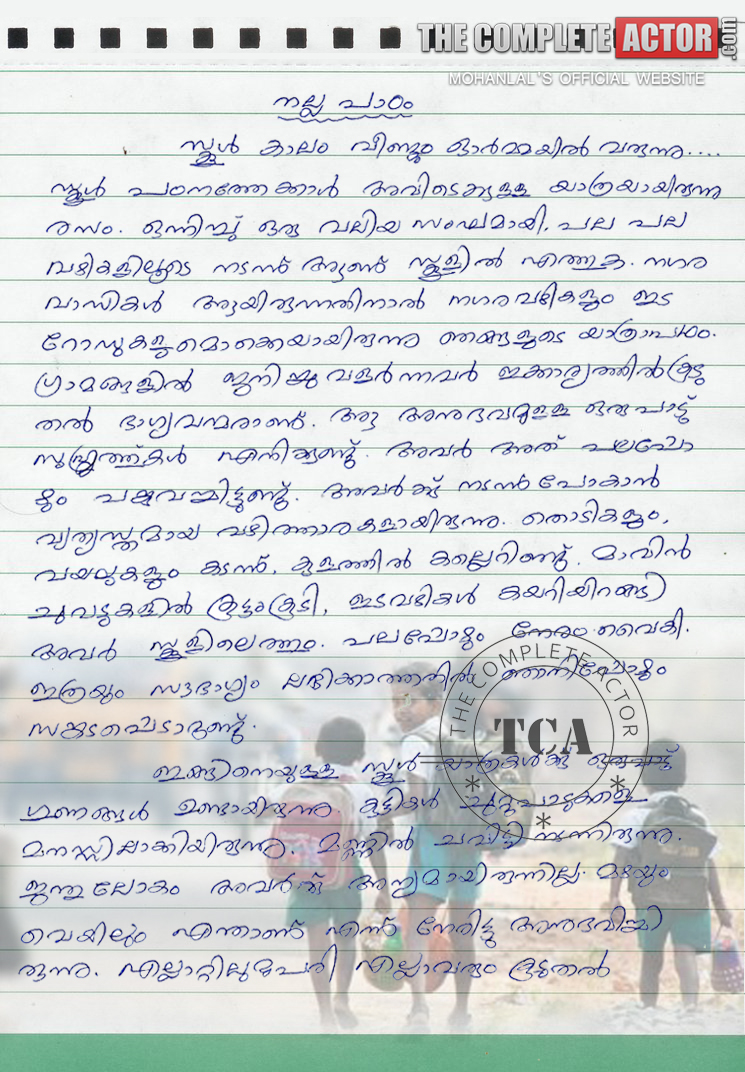 THE COMPLETE ACTOR.com
MOHANLAL'S OFFICIAL WEBSITE
നല്ല പാഠം
സ്കൂൾ കാലം വീണ്ടും ഓർമ്മയിൽ വരുന്നു....
സ്കൂൾ പഠനത്തേക്കാൾ അവിടെക്കുള്ള യാത്രയായിരുന്നു
രസം. ഒന്നിച്ച് ഒരു വലിയ സംഘമായി, പല പല
വഴികളിലൂടെ നടന്ന് ആണ് സ്കൂളിൽ എത്തുക. നഗര
വാസികൾ ആയിരുന്നതിനാൽ നഗരവഴികളും ഇട
റോഡുകളുമൊക്കെയായിരുന്നു ഞങ്ങളുടെ യാത്രാപഥം.
ഗ്രാമങ്ങളിൽ ജനിച്ചു വളർന്നവർ ഇക്കാര്യത്തിൽ കൂടു
തൽ ഭാഗ്യവന്മരാണ്. ആ അനുഭവമുള്ള ഒരുപാട്
സുഹൃത്തുകൾ എനിക്കുണ്ട്. അവർ അത് പലപ്പോ
ഴും പങ്കുവച്ചിട്ടുണ്ട്. അവർക്ക് നടന്നു പോകാൻ
വ്യത്യസ്തമായ വഴിത്താരകളായിരുന്നു. തൊടികളും,
വയലുകളും കടന്ന്, കുളത്തിൽ കല്ലെറിഞ്ഞ്, മാവിൻ
ചുവടുകളിൽ കൂട്ടംകൂടി, ഇടവഴികൾ കയറിയിറങ്ങി
അവർ സ്കൂളിലെത്തും. പലപ്പോഴും നേരം വൈകി.
ഇത്രയും സൗഭാഗ്യം ലഭിക്കാത്തതിൽ ഞാനിപ്പോഴും
സങ്കടപ്പെടാറുണ്ട്.
THE COMPLETE ACTOR
TCA
ഇങ്ങിനെയുള്ള സ്കൂൾ യാത്രകൾക്ക് ഒരുപാട്
ഗുണങ്ങൾ ഉണ്ടായിരുന്നു. കുട്ടികൾ ചുറ്റുപാടുകളെ
മനസ്സിലാക്കിയിരുന്നു. മണ്ണിൽ ചവിട്ടി നടന്നിരുന്നു.
ജന്തുലോകം അവർക്ക് അന്യമായിരുന്നില്ല. മഴയും
വെയിലും എന്താണ് എന്ന് നേരിട്ടു അനുഭവിച്ചി
രുന്നു. എല്ലാറ്റിലുമുപരി എല്ലാവരും കൂടുതൽ